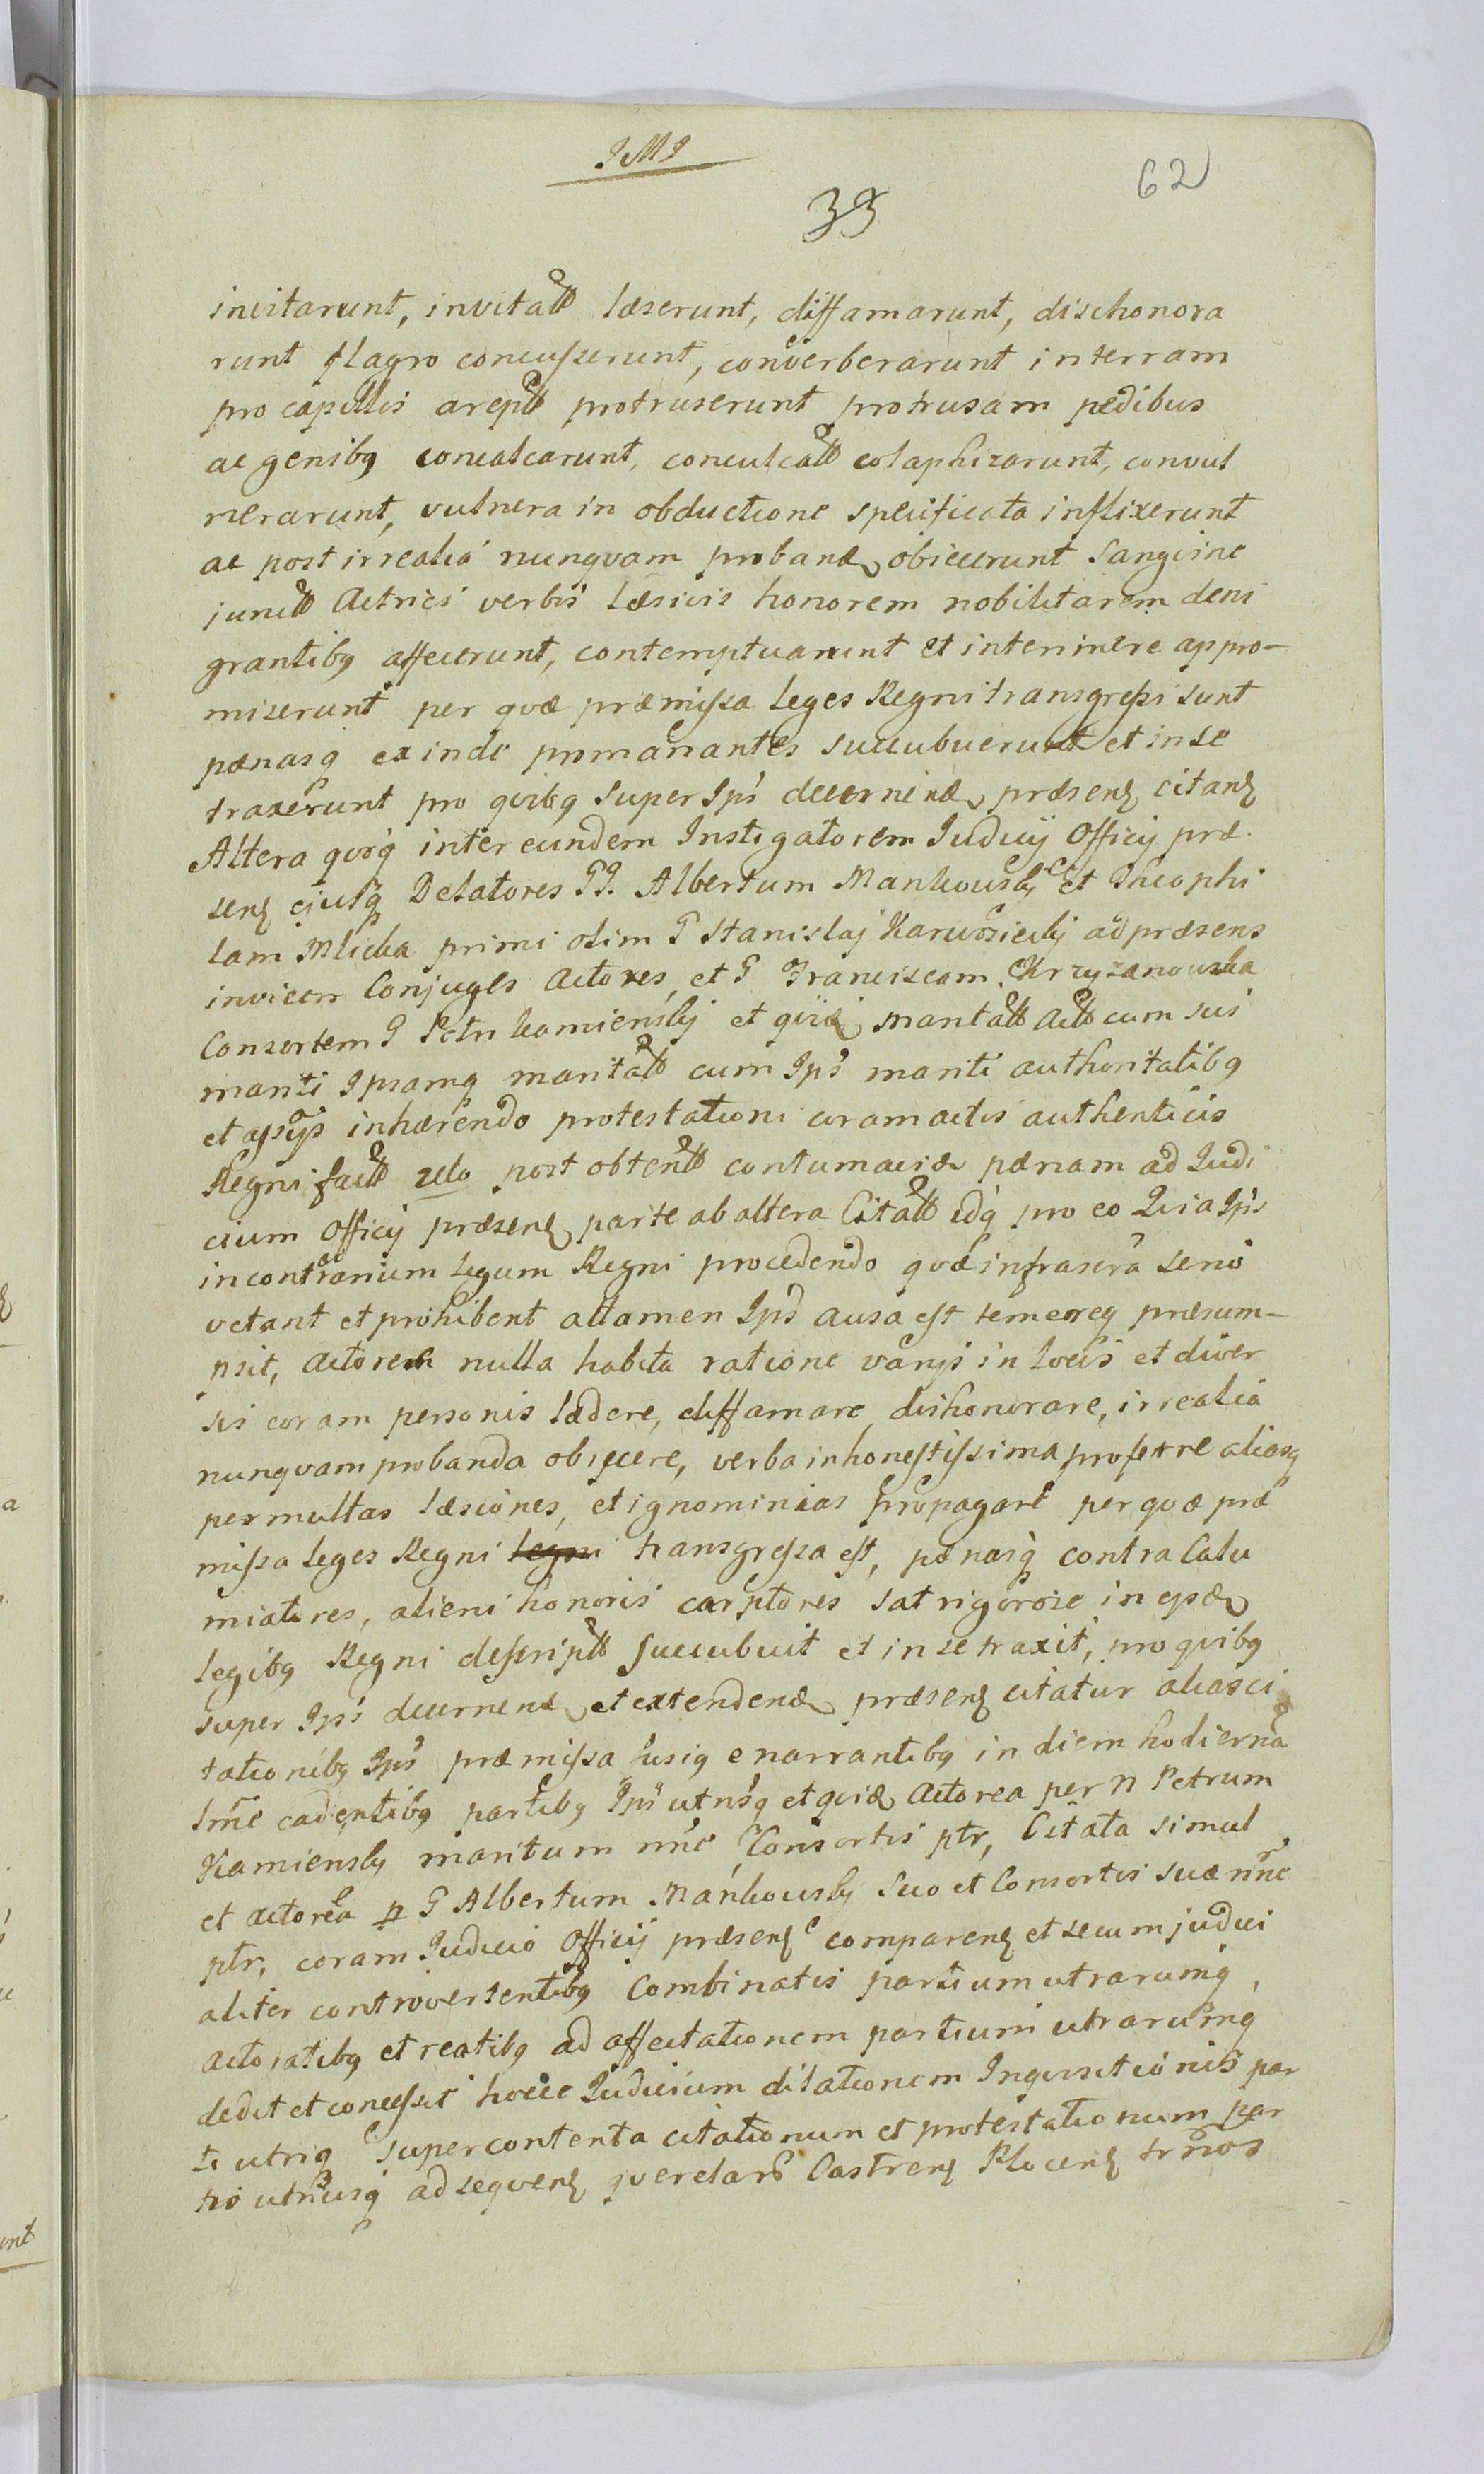 JMJ
62
33
invitarunt, invitatt læserunt, diffamarunt, dischonora
runt flagro concusserunt, converberarunt in terram
pro capillis arept protruserunt protrusam pedibus
ac genibq concalcarunt, conculcatt colaphizarunt, convul
nerarunt, vulnera in obductione specificata inflixerunt
ac post irrealia nunqvam proband obiecerunt Sangvine
junctt Actrici verbis læsivis honorem nobilitarem deni
grantibq affecerunt, contemptuarunt et interimere appro-
miserunt per qvæ præmissa Leges Regni transgressi sunt
pænasq exinde promanantes succubuerunt et in se
traxerunt pro qvibq super Ips decernend præsen citan
Altera qvoq inter eundem Instigatorem Iudicij Officij præ
sen ejusq Delatores GG. Albertum Mankowsky et Theophi
lam Mlicka primi olim G Stanislaj Karwosiecky ad præsens
invicem Conjuges Actores, et G Franciscam Krzyzanowska
Consortem G Petri Kamiensky et qvid maritatt Actt cum sui
mariti Ipsamq maritatt cum Ips mariti authoritatibq
et assijs inhærendo protestationi coram actis authenticis
Regni factt zelo post obtentt contumaciæ pænam ad Iudi
cium Officij præsen parte ab altera Citatt idq pro eo Quia Ips
in contrarium Legum Regni procedendo qvæ infrascra serio
vetant et prohibent attamen Ips ausa est temereq præsum-
psit, Actorem nulla habita ratione varijs in locis et diver
sis coram personis lædere, diffamare dishonorare, irrealia
nunqvam probanda obijcere, verba inhonestissima proferre aliasq
permultas læsiones, et ignominias propagare per qvæ præ
missa Leges Regni legni transgressa est, pænasq contra Calu
miatores, alieni honoris carptores sat rigorose in ejsd
legibq Regni descriptt succubuit et in se traxit, pro qvibq
super Ips decernend et extendend præsen citatur alias ci
tationibq Ips præmissa fusiq enarrantibq in diem hodierna
trne cadentibq partibq Ips utrisq et qvid Actorea per N Petrum
Kamiensky maritum nne Consortis ptr, Citata simul
et actorea p G Albertum Mankowsky suo et Consortis suæ nne
ptr, coram Iudicio Officij præsen comparen et secum judici
aliter controversentibq Combinatis partium utrarumq
actoratibq et reatibq ad affectationem partium utrarumq
dedit et concessit hocce Iudicium dilationem Inqvisitionis par
ti utriq super contenta citationum et protestationum par
tis utriusq ad seqven qverelar Castren Plocen trnos